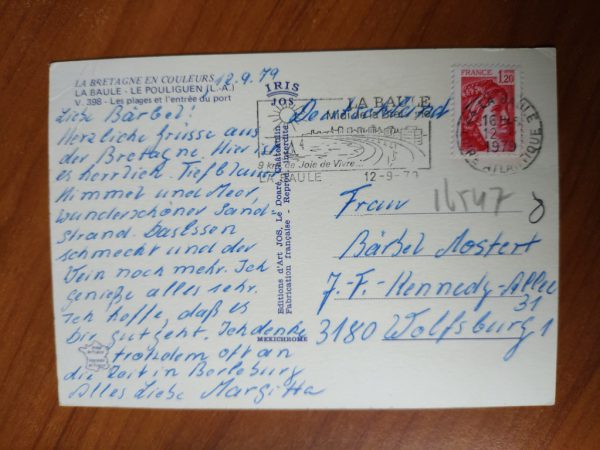 LA BRETAGNE EN COULEURS
LA BAULE - LE POULIGUEN (L.-A.)
V. 398 - Les plages et l'entrée du port
12.9.79
Liebe Bärbel!
Herzliche Grüsse aus
der Bretagne. Hier
es herrlich. Tiefblau
Himmel und Meer,
wunderschöner Sand
strand. Das Essen
schmeckt und der
Wein noch mehr. Ich
genieße alles sehr.
Ich hoffe, daß es
dir gut geht. Ich denke
trotzdem oft an
die Zeit in Berleburg
Alles Liebe Margitta
IRIS
JOS
Editions d'Art JOS, Le Doaré, Chateaulin
Fabrication française - Reproduction interdite
MEXICHROME
LA BAULE
9 km de Joie de Vivre
LA BAULE 12-9-79
FRANCE
1,20
16H
12-9
1979
LOIRE ATLANTIQUE
Deutschland
Frau
16547
Bärbel Mostert
J.-F.-Kennedy-Allee
31
3180 Wolfsburg 1